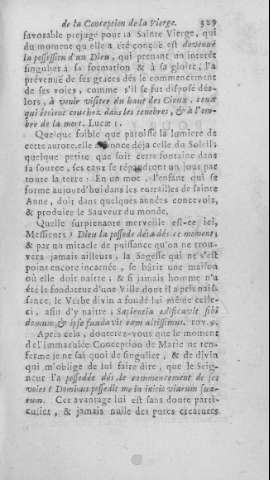 de la Conception de la Vierge. 329
favorable préjugé pour la Sainte Vierge, qui
du moment qu'elle a été conçuë est devenuë
la possession d'un Dieu, qui prenant un interêt
singulier à sa formation & à sa gloire, l'a
prévenuë de ses graces dés le commencement
de ses voies, comme s'il se fut disposé dés-
lors, à venir visiter du haut des Cieux, ceux
qui étoient couchez dans les tenebres, & à l'om-
bre de la mort. Lucæ 1.
Quelque foible que paroisse la lumiere de
cette aurore, elle annonce déja celle du Soleil;
quelque petite que soit cette fontaine dans
sa source, ses eaux se répandront un jour par
toute la terre. En un mot, l'enfant qui se
forme aujourd'hui dans les entrailles de sainte
Anne, doit dans quelques années concevoir,
& produire le Sauveur du monde.
Quelle surprenante merveille est-ce ici,
Messieurs? Dieu la possede dés ce moment,
& par un miracle de puissance qu'on ne trou-
vera jamais ailleurs, la Sagesse qui ne s'est
point encore incarnée, se bâtit une maison
où elle doit naître; & si jamais homme n'a
été le fondateur d'une Ville dont il a pris nais-
sance, le Verbe divin a fondé lui même celle-
ci, afin d'y naître: Sapientia ædificavit sibi
domum & ipse fundavit eam altissimus.
Aprés cela, douterez-vous que le moment
de l'immaculée Conception de Marie ne ren-
ferme je ne sai quoi de singulier, & de divin
qui m'oblige de lui faire dire, que le Sei-
gneur l'a possedée dés le commencement de ses
voies: Dominus possedit me in initio viarum sua-
rum. Cet avantage lui est sans doute parti-
culier, & jamais nulle des pures creatures